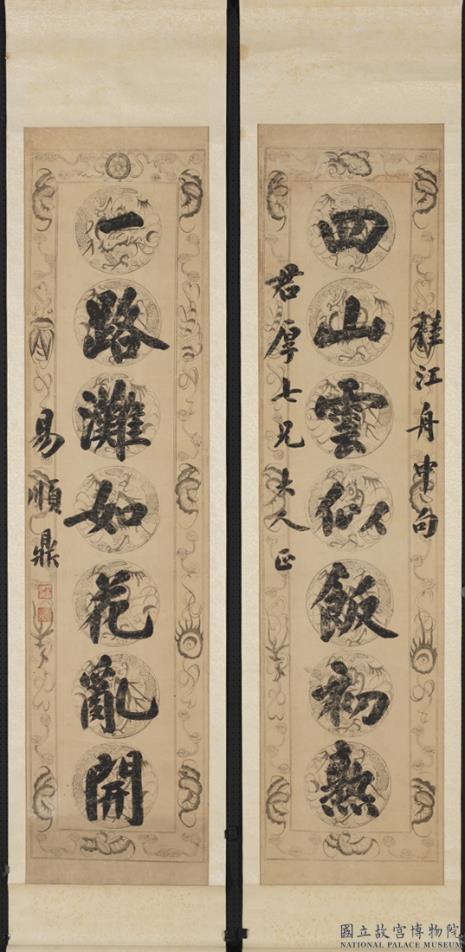 桂江舟中句
四山雲似飯初熟
君厚七兄大人正
一路灘如花亂開
易順鼎
國立故宮博物院
NATIONAL PALACE MUSEUM